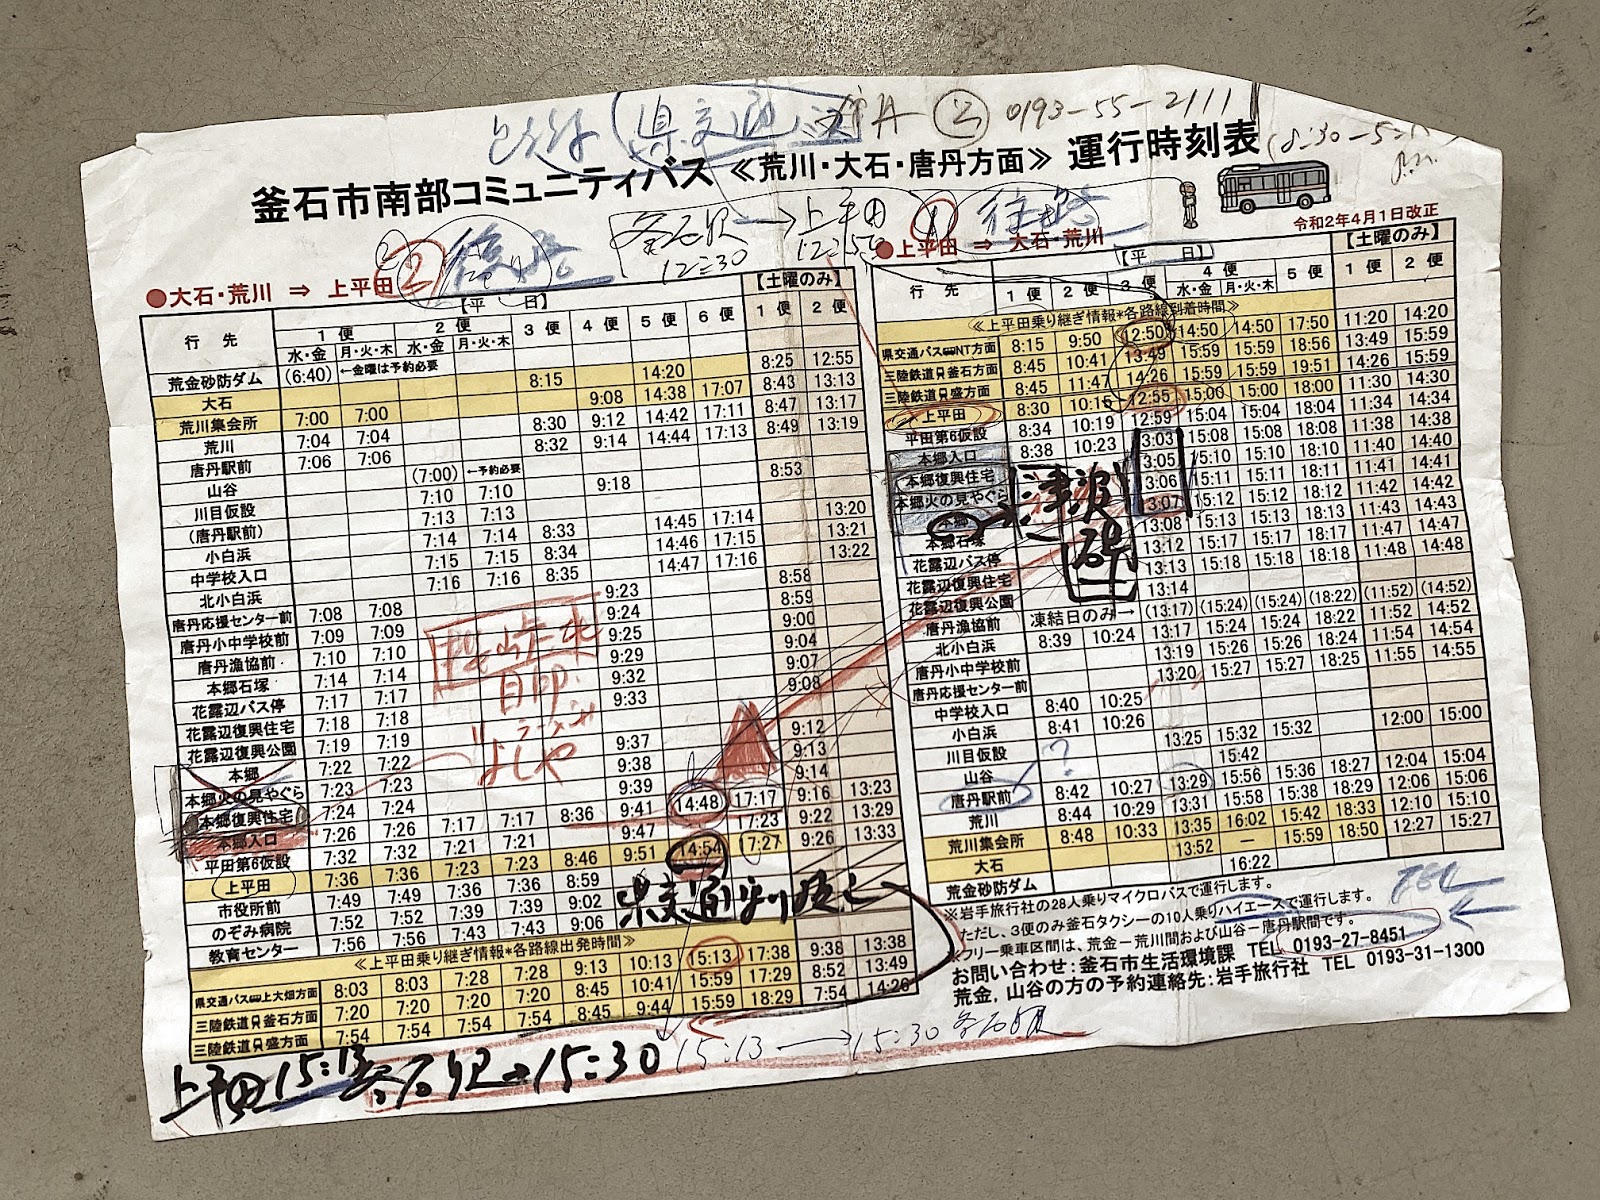 県交通 ② 0193-55-2111
(8:30-5:
釜石市南部コミュニティバス ≪荒川・大石・唐丹方面≫ 運行時刻表
令和2年4月1日改正
② 復路
釜石駅 → 上平田
12:30 12:50
① 往路
●大石・荒川 ⇒ 上平田
【平 日】 【土曜のみ】
行先 1便 2便 3便 4便 5便 6便 1便 2便
水・金 月・火・木 水・金 月・火・木
荒金砂防ダム (6:40) ←金曜は予約必要 8:25 12:55
大石 8:15 14:20
荒川集会所 7:00 7:00 9:08 14:38 17:07 8:43 13:13
荒川 7:04 7:04 8:30 9:12 14:42 17:11 8:47 13:17
唐丹駅前 7:06 7:06 8:32 9:14 14:44 17:13 8:49 13:19
山谷 (7:00) ←予約必要
川目仮設 7:10 7:10 9:18 8:53
(唐丹駅前) 7:13 7:13
小白浜 7:14 7:14 8:33 14:45 17:14 13:20
中学校入口 7:15 7:15 8:34 14:46 17:15 13:21
北小白浜 7:16 7:16 8:35 14:47 17:16 13:22
唐丹応援センター前 7:08 7:08 9:23 8:58
唐丹小中学校前 7:09 7:09 9:24 8:59
唐丹漁協前 7:10 7:10 9:25 9:00
本郷石塚 7:14 7:14 9:29 9:04
花露辺バス停 7:17 7:17 9:32 9:07
花露辺復興住宅 7:18 7:18 9:33 9:08
花露辺復興公園 7:19 7:19
本郷 7:22 7:22 9:37 9:12
本郷火の見やぐら 7:23 7:23 9:38 9:13
本郷復興住宅 7:24 7:24 9:39 9:14
本郷入口 7:26 7:26 7:17 7:17 8:36 9:41 14:48 17:17 9:16 13:23
平田第6仮設 7:32 7:32 7:21 7:21 9:47 17:23 9:22 13:29
上平田 7:36 7:36 7:23 7:23 8:46 9:51 14:54 17:27 9:26 13:33
市役所前 7:49 7:49 7:36 7:36 8:59
のぞみ病院 7:52 7:52 7:39 7:39 9:02
教育センター 7:56 7:56 7:43 7:43 9:06
県交通
≪上平田乗り継ぎ情報*各路線出発時間≫
県交通バス上大畑方面 8:03 8:03 7:28 7:28 9:13 10:13 15:13 17:38 9:38 13:38
三陸鉄道釜石方面 7:20 7:20 7:20 7:20 8:45 10:41 15:59 17:29 8:52 13:49
三陸鉄道盛方面 7:54 7:54 7:54 7:54 8:45 9:44 15:59 18:29 7:54 14:26
●上平田 ⇒ 大石・荒川
【平 日】 【土曜のみ】
行先 1便 2便 3便 4便 5便 1便 2便
水・金 月・火・木
≪上平田乗り継ぎ情報*各路線到着時間≫
県交通バスNT方面 8:15 9:50 12:50 14:50 14:50 17:50 11:20 14:20
三陸鉄道釜石方面 8:45 10:41 13:49 15:59 15:59 18:56 13:49 15:59
三陸鉄道盛方面 8:45 11:47 14:26 15:59 15:59 19:51 14:26 15:59
上平田 8:30 10:15 12:55 15:00 15:00 18:00 11:30 14:30
平田第6仮設 8:34 10:19 12:59 15:04 15:04 18:04 11:34 14:34
本郷入口 8:38 10:23 3:03 15:08 15:08 18:08 11:38 14:38
本郷復興住宅 3:05 15:10 15:10 18:10 11:40 14:40
本郷火の見やぐら 3:06 15:11 15:11 18:11 11:41 14:41
本郷 3:07 15:12 15:12 18:12 11:42 14:42
本郷石塚 13:08 15:13 15:13 18:13 11:43 14:43
花露辺バス停 13:12 15:17 15:17 18:17 11:47 14:47
花露辺復興住宅 13:13 15:18 15:18 18:18 11:48 14:48
花露辺復興公園 13:14
唐丹漁協前 凍結日のみ→ (13:17) (15:24) (15:24) (18:22) (11:52) (14:52)
北小白浜 8:39 10:24 13:17 15:24 15:24 18:22 11:52 14:52
唐丹小中学校前 13:19 15:26 15:26 18:24 11:54 14:54
唐丹応援センター前 13:20 15:27 15:27 18:25 11:55 14:55
中学校入口 8:40 10:25
小白浜 8:41 10:26
川目仮設 13:25 15:32 15:32 12:00 15:00
山谷 15:42
唐丹駅前 8:42 10:27 13:29 15:56 15:36 18:27 12:04 15:04
荒川 8:44 10:29 13:31 15:58 15:38 18:29 12:06 15:06
荒川集会所 8:48 10:33 13:35 16:02 15:42 18:33 12:10 15:10
大石 13:52 — 15:59 18:50 12:27 15:27
荒金砂防ダム 16:22
津波
碑
?
TEL
※岩手旅行社の28人乗りマイクロバスで運行します。
ただし、3便のみ釜石タクシーの10人乗りハイエースで運行します。
※フリー乗車区間は、荒金－荒川間および山谷－唐丹駅間です。
お問い合わせ：釜石市生活環境課 TEL 0193-27-8451
荒金，山谷の方の予約連絡先：岩手旅行社 TEL 0193-31-1300
上平田 15:13 釜石駅→15:30
15:13 → 15:30 釜石駅